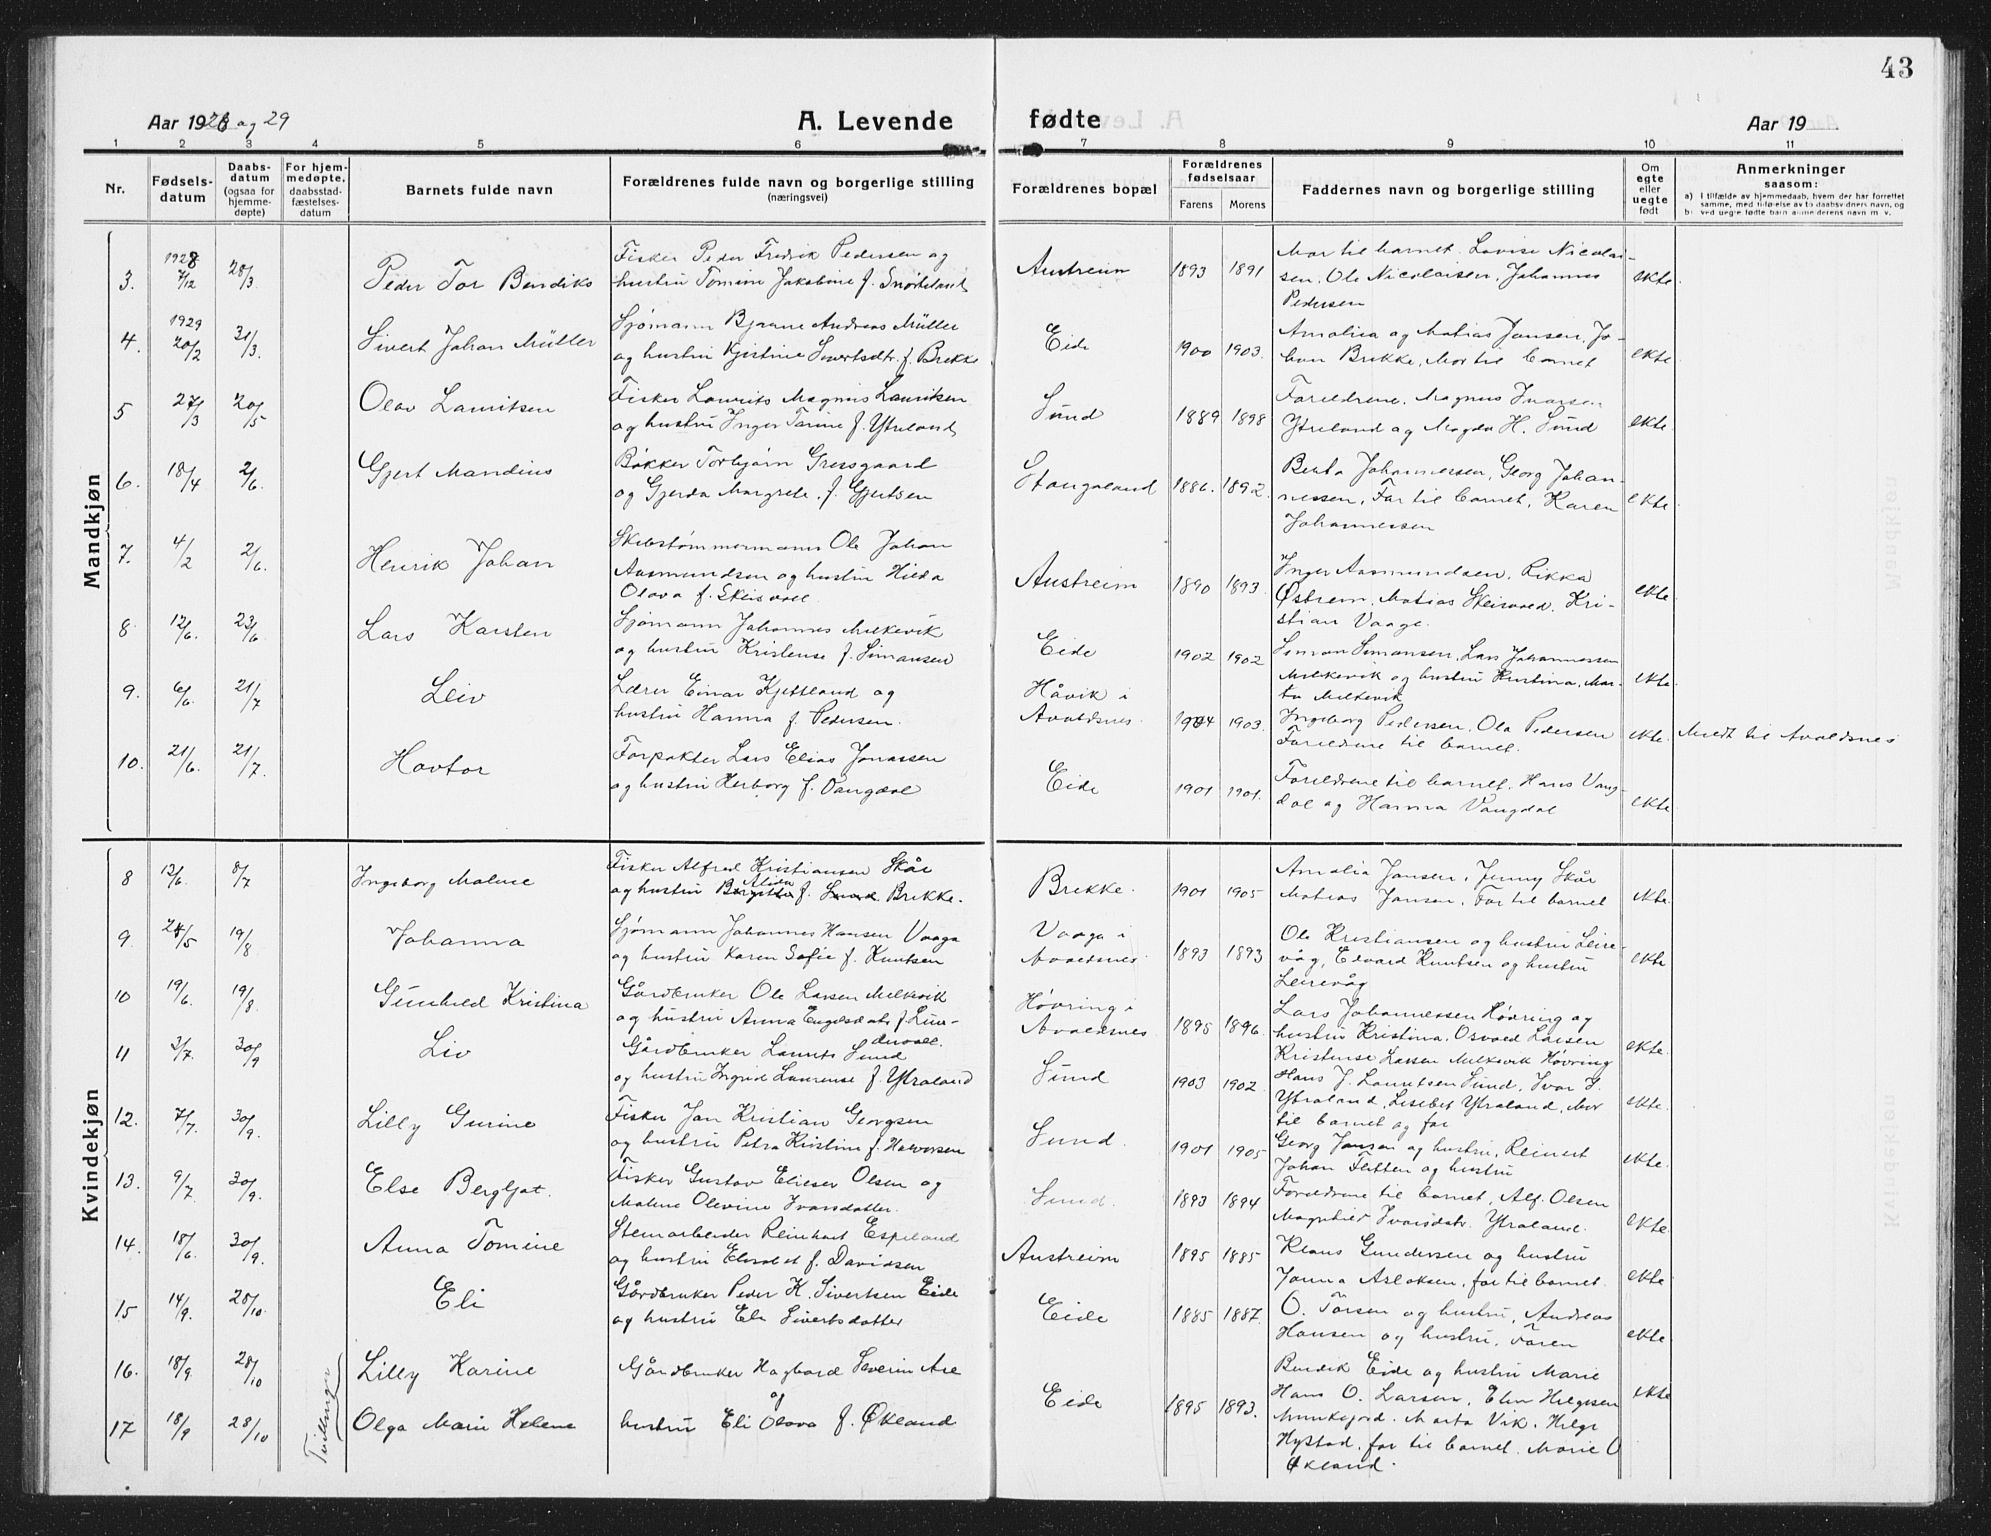 43
Aar 1928 og 29
A. Levende
fødte
Aar 19
1 2 3 4 5 6 7 8 9 10 11
Nr.
Fødsels-
datum
Daabs-
datum
(ogsaa for
hjemme-
døpte)
For hjem-
medøpte,
daabsstad-
fæstelses-
datum
Barnets fulde navn
Forældrenes fulde navn og borgerlige stilling
(næringsvei)
Forældrenes bopæl
Forældrenes
fødselsaar
Farens Morens
Faddernes navn og borgerlige stilling
Om
egte
eller
uegte
født
Anmerkninger
saasom:
a) I tilfælde av hjemmedaab, hvem der har forrettet
samme, med tilføielse av to daabsvidners navn, og
b) ved uegte fødte barn anmelderens navn m. v.
Mandkjøn
3. 1928 7/12 28/3 Peder Tor Bendiks
Fisker Peder Fredrik Pedersen og
hustru Tomine Jakobine f. Snørteland
Austreim 1893 1891
Mor til barnet. Lovise Nicolai-
sen, Ole Nicolaisen, Johannes
Pedersen
ekte.
4. 1929 20/2 31/3. Sivert Johan Müller
Sjømann Bjarne Andreas Müller
og hustru Kjistine Sivertsdtr. f. Brekke
Eide 1900 1903.
Amalia og Matias Jansen, Jo-
han Brekke, Mor til barnet
ekte
5 27/3 20/5 Olav Lauritsen
Fisker Laurits Magnus Lauritsen
og hustru Inger Tarine f. Ytreland
Sund 1889 1898
Foreldrene. Magnus Ivarsen
Ytreland og Magda H. Sund
ekte.
6. 18/4 2/6. Gjert Mandius
Bøkker Torbjørn Gressgaard
og Gjerda Margrete. f. Gjertsen
Stangaland 1886. 1892.
Berta Johannessen, Georg Johan-
nessen, Far til barnet, Karen
Johannessen
ekte.
7. 4/2 2/6. Henrik Johan
Skibstømmermann Ole Johan
Aasmundsen og hustru Hilda
Olava f. Skeisvoll.
Austreim 1890 1893.
Inger Aasmundsen. Rikka
Østrem, Matias Skeisvold. Kri-
stian Vaage.
ekte.
8. 12/6. 23/6 Lars Karsten
Sjømann Johannes Melkevik
og hustru Kristense f. Simonsen
Eide 1902 1902
Simon Simonsen. Lars Johannessen
Melkevik og hustru Kristina, Mar-
ta Melkevik
ekte.
9. 6/6. 21/7 Leiv
Lærer Einar Kjetland og
hustru Hanna f. Pedersen.
Håvik i
Avaldsnes. 1904 1903.
Ingeborg Pedersen. Ola Pedersen
Foreldrene til barnet.
ekte. Meldt til Avaldsnes
10. 21/6. 21/7. Havtor
Forpakter Lars Elias Jonassen
og hustru Herborg f. Vangdal
Eide 1901 1901.
Foreldrene til barnet. Hans Vang-
dal og Hanna Vangdal
ekte.
Kvindekjøn
8 12/6. 8/7 Ingeborg Malene
Fisker Alfred Kristiansen Skår
og hustru Alida f. Brekke.
Brekke. 1901 1905
Amalia Jansen, Jenny Skår
Matias Jansen. Far til barnet
ekte.
9. 28/5 19/8 Johanna
Sjømann Johannes Hansen Vaaga
og hustru Karen Sofie f. Knutsen
Vaaga i
Avaldsnes. 1893 1893
Ole Kristiansen og hustru Leire-
våg, Edvard Knutsen og hustru
Leirevåg
ekte
10 19/6. 19/8. Gunhild Kristina
Gårdbruker Ole Larsen Melkevik
og hustru Anna Engelsdatr. f. Lun-
dervall.
Høvring i
Avaldsnes 1895 1896.
Lars Johannessen Høvring og
hustru Kristina. Osvald Larsen
Kristense Larsen Melkevik Høvring
ekte.
11 3/7. 30/9 Liv
Gårdbruker Laurits Sund
og hustru Ingrid Laurense f. Ytraland
Sund 1903 1902.
Hans J. Lauritsen Sund, Ivar S.
Ytraland, Lisebet Ytraland, Mor
til barnet og far
ekte.
12. 7/7. 30/9. Lilly Gurine
Fisker Jan Kristian Georgsen
og hustru Petra Kristine f. Halvorsen
Sund. 1901 1905
Georg Jansen og hustru, Reinert
Johan Fletten og hustru
ekte.
13. 9/7. 30/9. Else Bergljot.
Fisker Gustav Elieser Olsen og
Malene Olevine Ivarsdatter.
Sund. 1893 1894
Foreldrene til barnet, Alf. Olsen
Magnhild Ivarsdtr. Ytraland.
ekte.
14. 18/6 30/9. Anna Tomine
Stenarbeider Reinhart Espeland
og hustru Elisabet f. Davidsen
Austreim 1895 1885
Klaus Gundersen og hustru
Janna Aslaksen, far til barnet.
ekte
15 14/9. 28/10. Eli
Gårdbruker Peder K. Sivertsen Eide
og hustru Eli Sivertsdatter
Eide 1885 1887.
O. Torsen og hustru, Andreas
Hansen og hustru, Faren
ekte.
16. 18/9. 28/10 Tvillinger Lilly Karine
Gårdbruker Hagbard Severin Ase
og
17 18/9 28/10 Olga Marie Helene
hustru Eli Olava f. Økland
Eide 1895 1893.
Bendik Eide og hustru Marie
Hans O. Larsen, Elen Helgesen
Munkejord. Marta Vik. Helge
Hystad, far til barnet. Marie O
Økland.
ekte